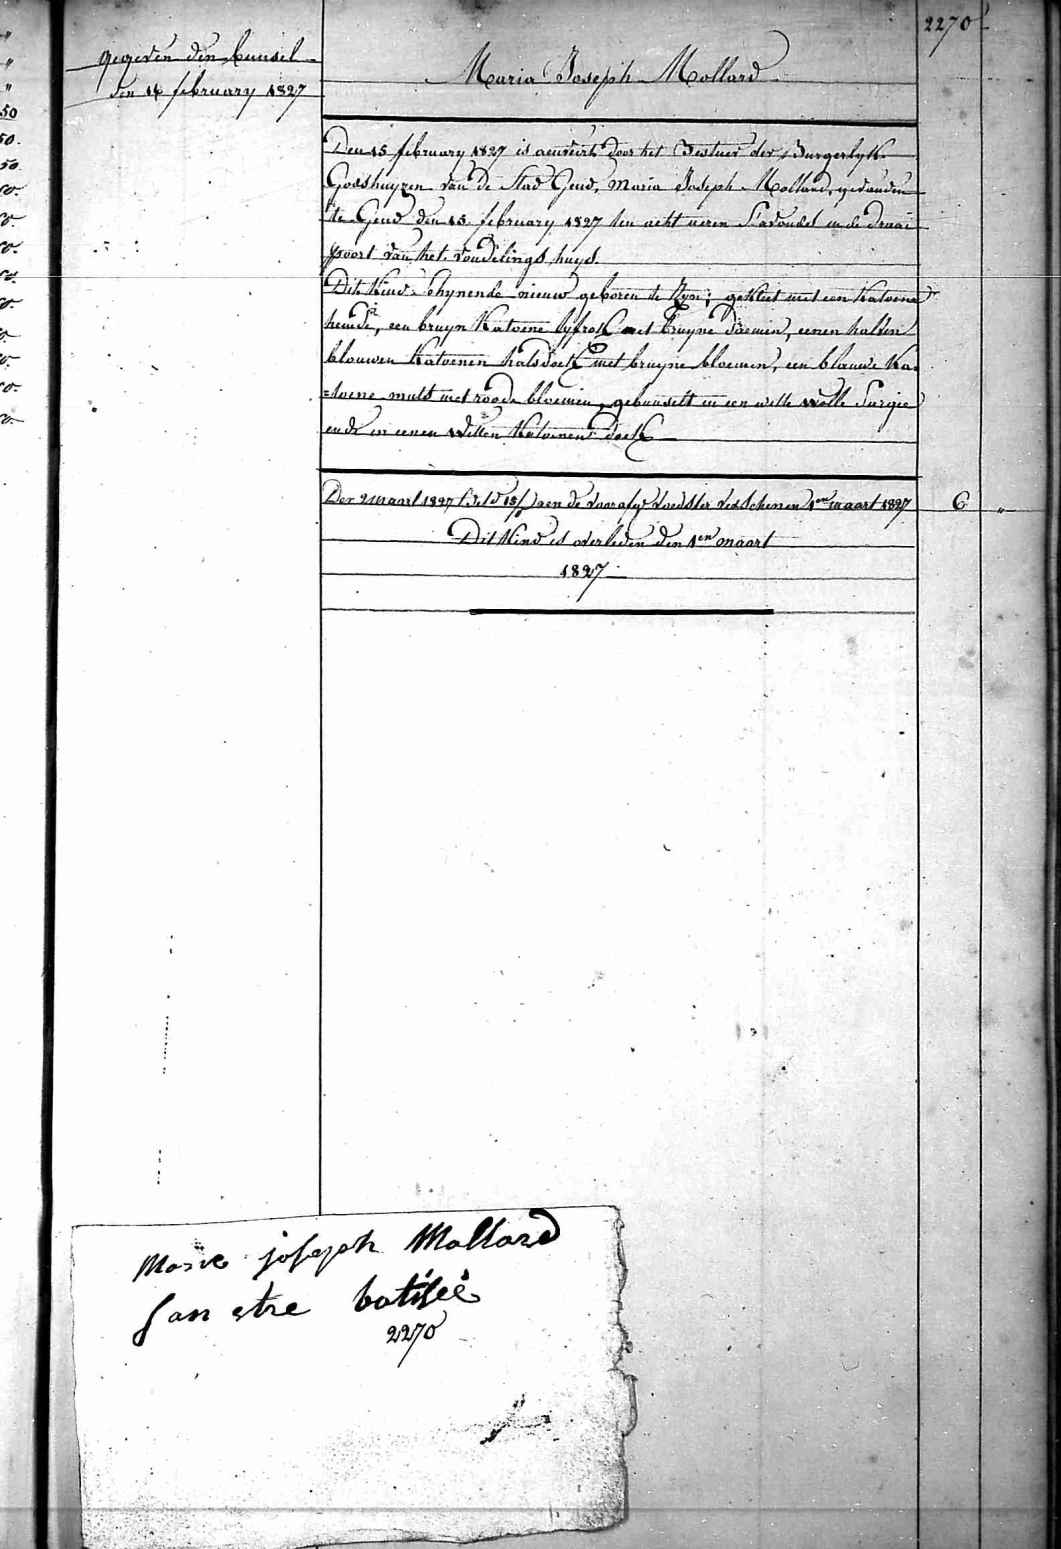 2270
gegeven den bunsel
den 16 february 1827
Maria Joseph Mollard
Den 15 february 1827 is aenveirt door het Bestuer der Burgerlyke
Godshuyzen van de Stad Gend, Maria Joseph Mollard, gevonden
te Gend den 15 february 1827 ten acht ueren S'avonds in de draai
poort van het vondelings huys.
Dit Kind schynende nieuw geboren te zyn; gekleet met een Katoene
hemde, een bruyn Katoene lyfrok met bruyne bloemen, eenen halven
blauwen Katoenen halsdoek met bruyne bloemen, een blauwe Ka-
=toene muts met roode bloemen, gebunselt in een witte wolle Sargie
ende in eenen witten Katoenen doek
Den 2 maart 1827 aen de voedster verschenen 1en maart 1827
6 "
Dit Kind is overleden den 1en maart
1827
Marie joseph Mallard
san etre batisée
2270
"
"
"
50
50.
50